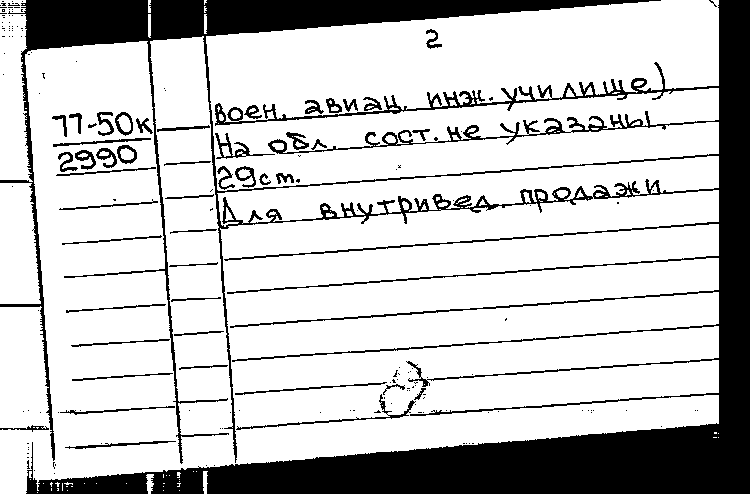 2
77-50к
2990
воен. авиац. инж. училище.)
На обл. сост. не указаны.
29 ст.
Для внутривед. продажи.